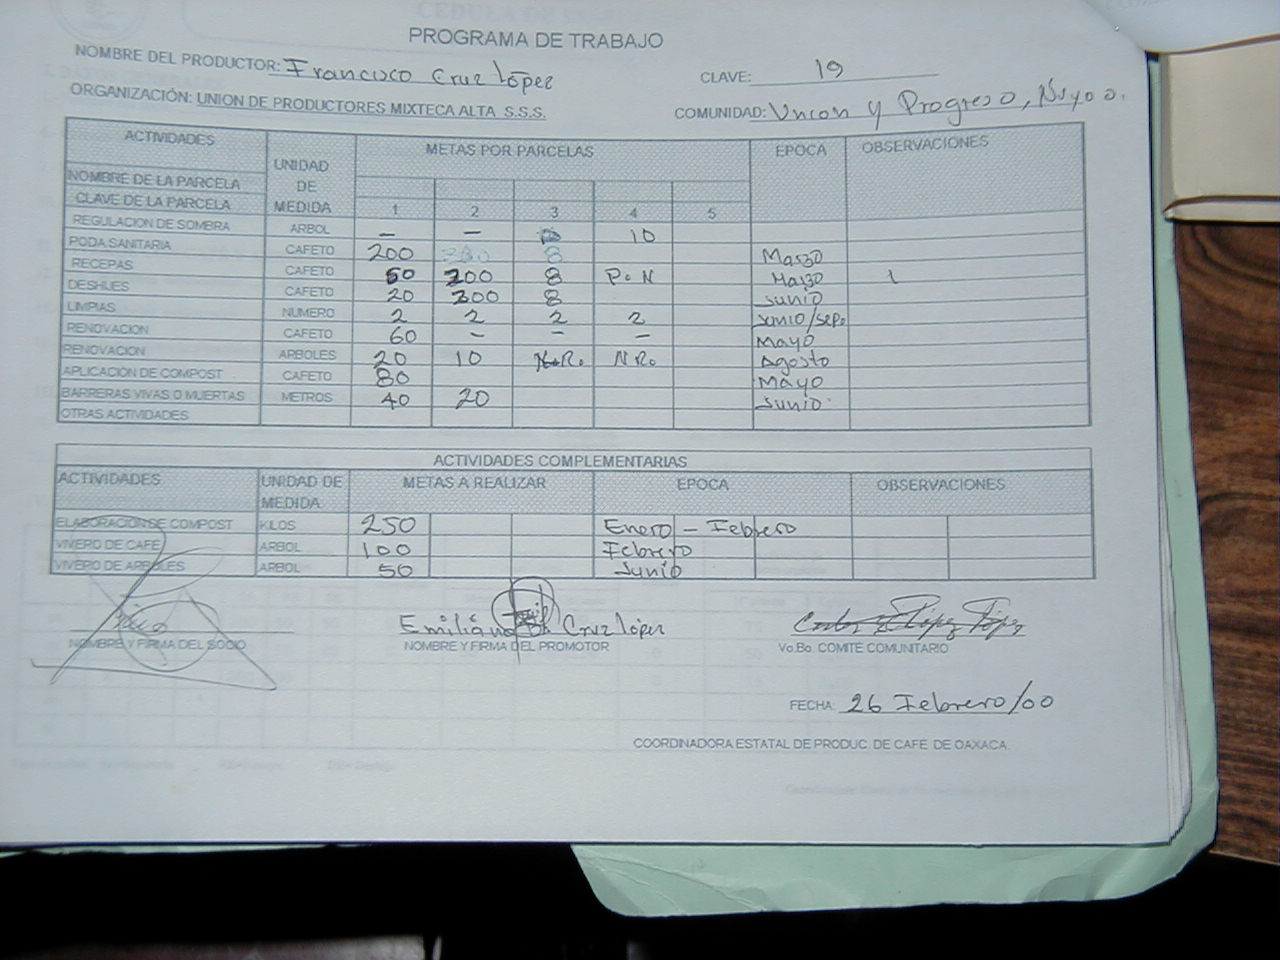 PROGRAMA DE TRABAJO
NOMBRE DEL PRODUCTOR: Francisco Cruz López CLAVE: 19
ORGANIZACIÓN: UNION DE PRODUCTORES MIXTECA ALTA S.S.S. COMUNIDAD: Union y Progreso, Nuyoo.
ACTIVIDADES UNIDAD DE MEDIDA METAS POR PARCELAS EPOCA OBSERVACIONES
NOMBRE DE LA PARCELA
CLAVE DE LA PARCELA 1 2 3 4 5
REGULACION DE SOMBRA ARBOL — — 10
PODA SANITARIA CAFETO 200 8 Marzo
RECEPAS CAFETO 50 200 8 P.N Marzo
DESHIJES CAFETO 20 200 8 Junio
LIMPIAS NUMERO 2 2 2 2 Junio/sep.
RENOVACION CAFETO 60 — — — Mayo
RENOVACION ARBOLES 20 10 N.Ro. N Ro. Agosto
APLICACIÓN DE COMPOST CAFETO 80 Mayo
BARRERAS VIVAS O MUERTAS METROS 40 20 Junio
OTRAS ACTIVIDADES
ACTIVIDADES COMPLEMENTARIAS
ACTIVIDADES UNIDAD DE MEDIDA METAS A REALIZAR EPOCA OBSERVACIONES
ELABORACION DE COMPOST KILOS 250 Enero - Febrero
VIVERO DE CAFÉ ARBOL 100 Febrero
VIVERO DE ARBOLES ARBOL 50 Junio
Emiliano Cruz López
NOMBRE Y FIRMA DEL SOCIO NOMBRE Y FIRMA DEL PROMOTOR Vo.Bo. COMITE COMUNITARIO
FECHA: 26 Febrero/00
COORDINADORA ESTATAL DE PRODUC. DE CAFÉ DE OAXACA.